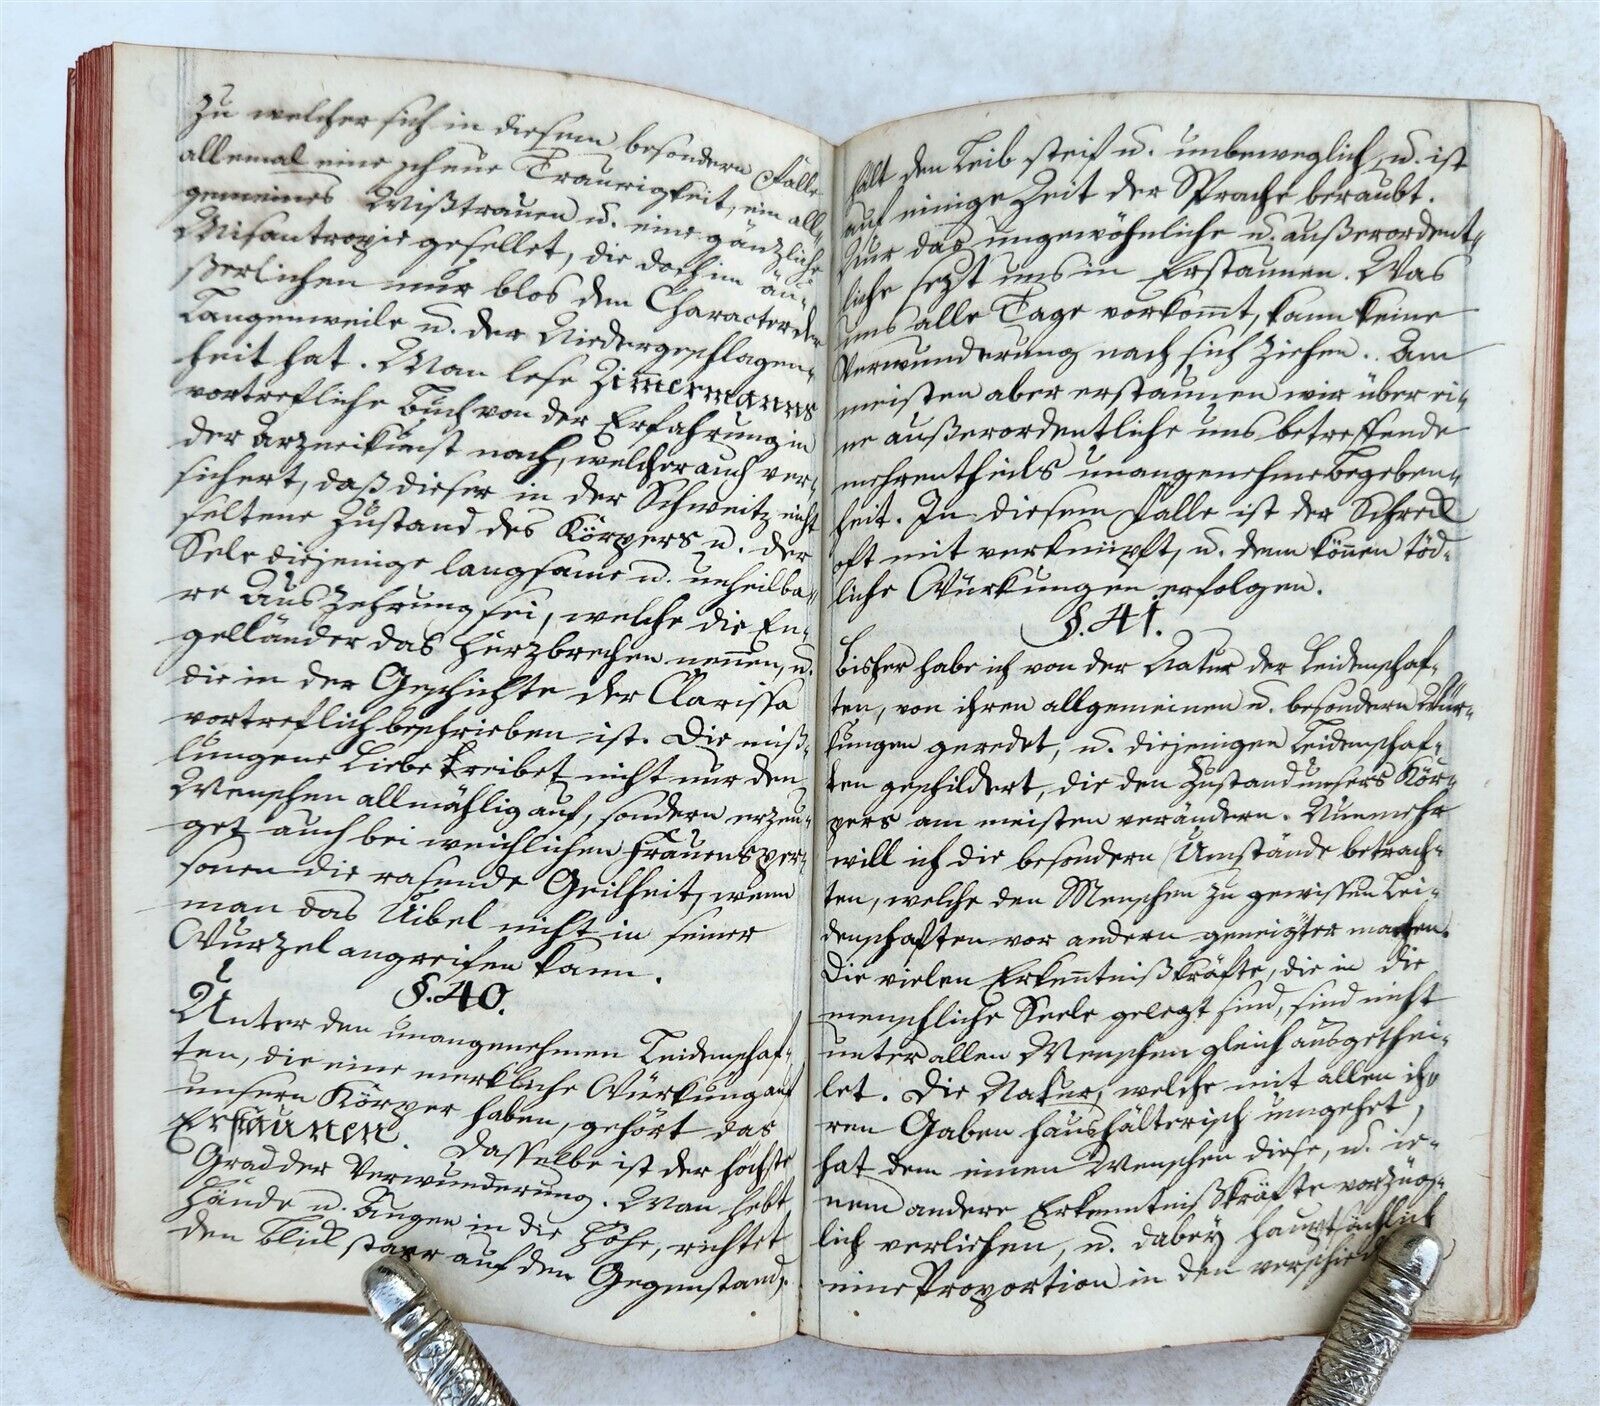 Zu welcher sich in diesem besondern Falle
allemal eine scheue Traurigkeit, ein all-
gemeines Mißtrauen u. eine gänzliche
Misantropie gesellet, die doch im äu-
ßerlichen nur blos den Character der
Langenweile u. der Niedergeschlagen-
heit hat. Man lese Zimmermanns
vortrefliche Buch von der Erfahrung in
der Arzneikunst nach, welcher auch ver-
sichert, daß dieser in der Schweitz nicht
seltene Zustand des Körpers u. der
Sele diejenige langsame u. unheilba-
re Auszehrung sei, welche die En-
gelländer das Herzbrechen nennen, u.
die in der Geschichte der Clarissa
vortreflich beschrieben ist. Die miß-
lungene Liebe treibet nicht nur den
Menschen allmählig auf, sondern erzeu-
get auch bei weichlichen Frauensper-
sonen die rasende Geilheit, wenn
man das Uibel nicht in seiner
Wurzel angreifen kann.
§. 40.
Unter den unangenehmen Leidenschaf-
ten, die eine merkliche Würkung auf
unsern Körper haben, gehört das
Erstaunen. Dasselbe ist der höchste
Grad der Verwunderung. Man hebt
Hände u. Augen in die Höhe, richtet
den Blick starr auf den Gegenstand,
hält den Leib steif u. unbeweglich, u. ist
auf einige Zeit der Sprache beraubt.
Nur das ungewöhnliche u. außerordent-
liche sezt uns in Erstaunen. Was
uns alle Tage vorkomt, kann keine
Verwunderung nach sich ziehen. Am
meisten aber erstaunen wir über ei-
ne außerordentliche uns betreffende
mehrentheils unangenehme Begeben-
heit. In diesem Falle ist der Schreck
oft mit verknüpft, u. denn können töd-
liche Würkungen erfolgen.
§. 41.
Bisher habe ich von der Natur der Leidenschaf-
ten, von ihren allgemeinen u. besondern Wür-
kungen geredet, u. diejenigen Leidenschaf-
ten geschildert, die den Zustand unsers Kör-
pers am meisten verändern. Nunmehr
will ich die besondern Umstände betrach-
ten, welche den Menschen zu gewissen Lei-
denschaften vor andern geneigter machen.
Die vielen Erkenntnißkräfte, die in die
menschliche Seele gelegt sind, sind nicht
unter allen Menschen gleich ausgethei-
let. Die Natur, welche mit allen ih-
ren Gaben haushälterisch umgehet,
hat dem einen Menschen diese, u. ie-
nem andere Erkenntnißkräfte vorzüg-
lich verliehen, u. dabey hauptsächlich
eine Proportion in den verschied